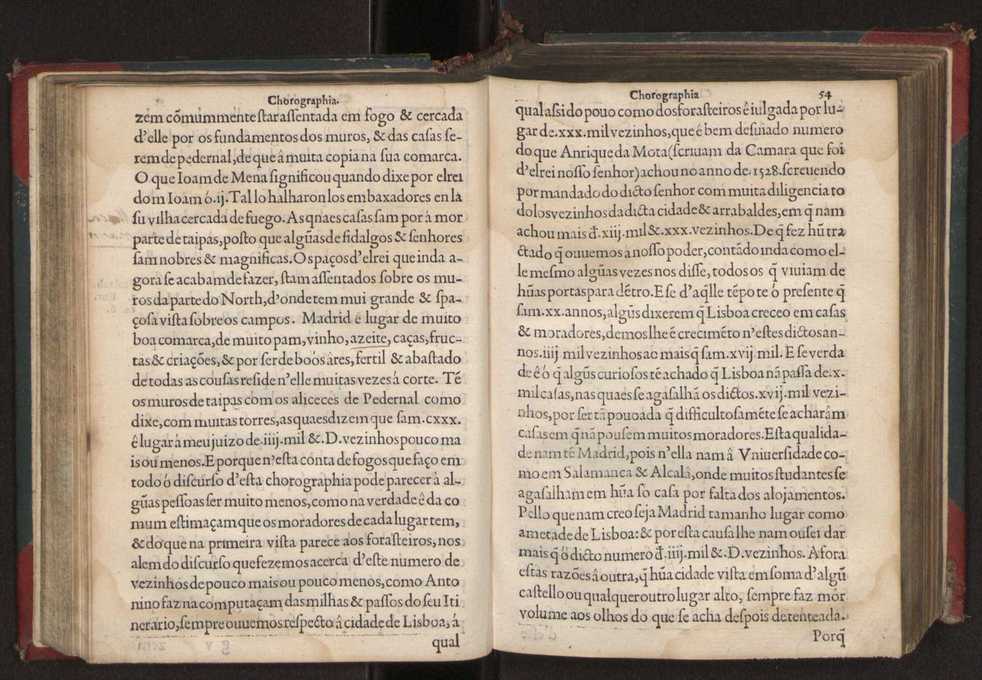 Chorographia.
zem cõmummente star assentada em fogo & cercada
d'elle por os fundamentos dos muros, & das casas se-
rem de pedernal, de que â muita copia na sua comarca.
O que Ioam de Mena significou quando dixe por elrei
dom Ioam ó .ij. Tal lo halharon los embaxadores en la
su vilha cercada de fuego. As quaes casas sam por à mor
parte de taipas, posto que algũas de fidalgos & senhores
sam nobres & magnificas. O spaços d'elrei que inda a-
gora se acabam de fazer, stam assentados sobre os mu-
ros da parte do North, d'onde tem mui grande & spa-
çosa vista sobre os campos. Madrid e lugar de muito
boa comarca, de muito pam, vinho, azeite, caças, fruc-
tas & criações, & por ser de boòs àres, fertil & abastado
de todas as cousas reside n'elle muitas vezes à corte. Té
os muros de taipas com os aliceces de Pedernal como
dixe, com muitas torres, as quaes dizem que sam .cxxx.
ê lugar à meu juizo de .iiij. mil &. D. vezinhos pouco ma
is ou menos. E porque n'esta conta de fogos que faço em
todo ò discurso d'esta chorographia pode parecer à al-
gũas pessoas ser muito menos, como na verdade ê da co
mum estimaçam que os moradores de cada lugar tem,
& do que na primeira vista parece aos forasteiros, nos
alem do discurso que fezemos acerca d'este numero de
vezinhos de pouco mais ou pouco menos, como Anto
nino faz na computaçam das milhas & passos do seu Iti
nerario, sempre ouuemos respecto â cidade de Lisboa, à
qual
Chorographia 54
qual assi do pouo como dos forasteiros ê iulgada por lu-
gar de .xxx. mil vezinhos, que ê bem desuiado numero
do que Anrique da Mota (scriuam da Camara que foi
d'elrei nosso senhor) achou no anno de .1528. screuendo
por mandado do dicto senhor com muita diligencia to
dolos vezinhos da dicta cidade & arrabaldes, em q̃ nam
achou mais đ .xiij. mil &. xxx. vezinhos. De q̃ fez hũ tra
ctado q̃ ouuemos a nosso poder, contãdo inda como el-
le mesmo algũas vezes nos disse, todos os q̃ viuiam de
hũas portas para dẽtro. E se d'aq̃lle tẽpo te ò presente q̃
sam .xx. annos, algũs dixerem q̃ Lisboa creceo em casas
& moradores, demos lhe ẽ crecimẽto n'estes dictos an-
nos .iiij. mil vezinhos ao mais q̃ sam .xvij. mil. E se verda
de ê ò q̃ algũs curiosos tẽ achado q̃ Lisboa nã passa de .x.
mil casas, nas quaes se agasalhã os dictos .xvij. mil vezi-
nhos, por ser tã pouoada q̃ difficultosamẽte se acharâm
casas em q̃ nã pousem muitos moradores. Esta qualida-
de nam tẽ Madrid, pois n'ella nam â Vniuersidade co-
mo em Salamanca & Alcalâ, onde muitos studantes se
agasalham em hũa so casa por falta dos alojamentos.
Pello que nam creo seja Madrid tamanho lugar como
ametade de Lisboa: & por esta causa lhe nam ousei dar
mais q̃ ò dicto numero đ .iiij. mil &. D. vezinhos. Afora
estas razões â outra, q̃ hũa cidade vista em soma d'algũ
castello ou qualquer outro lugar alto, sempre faz mòr
volume aos olhos do que se acha despois de tenteada.
Porq̃